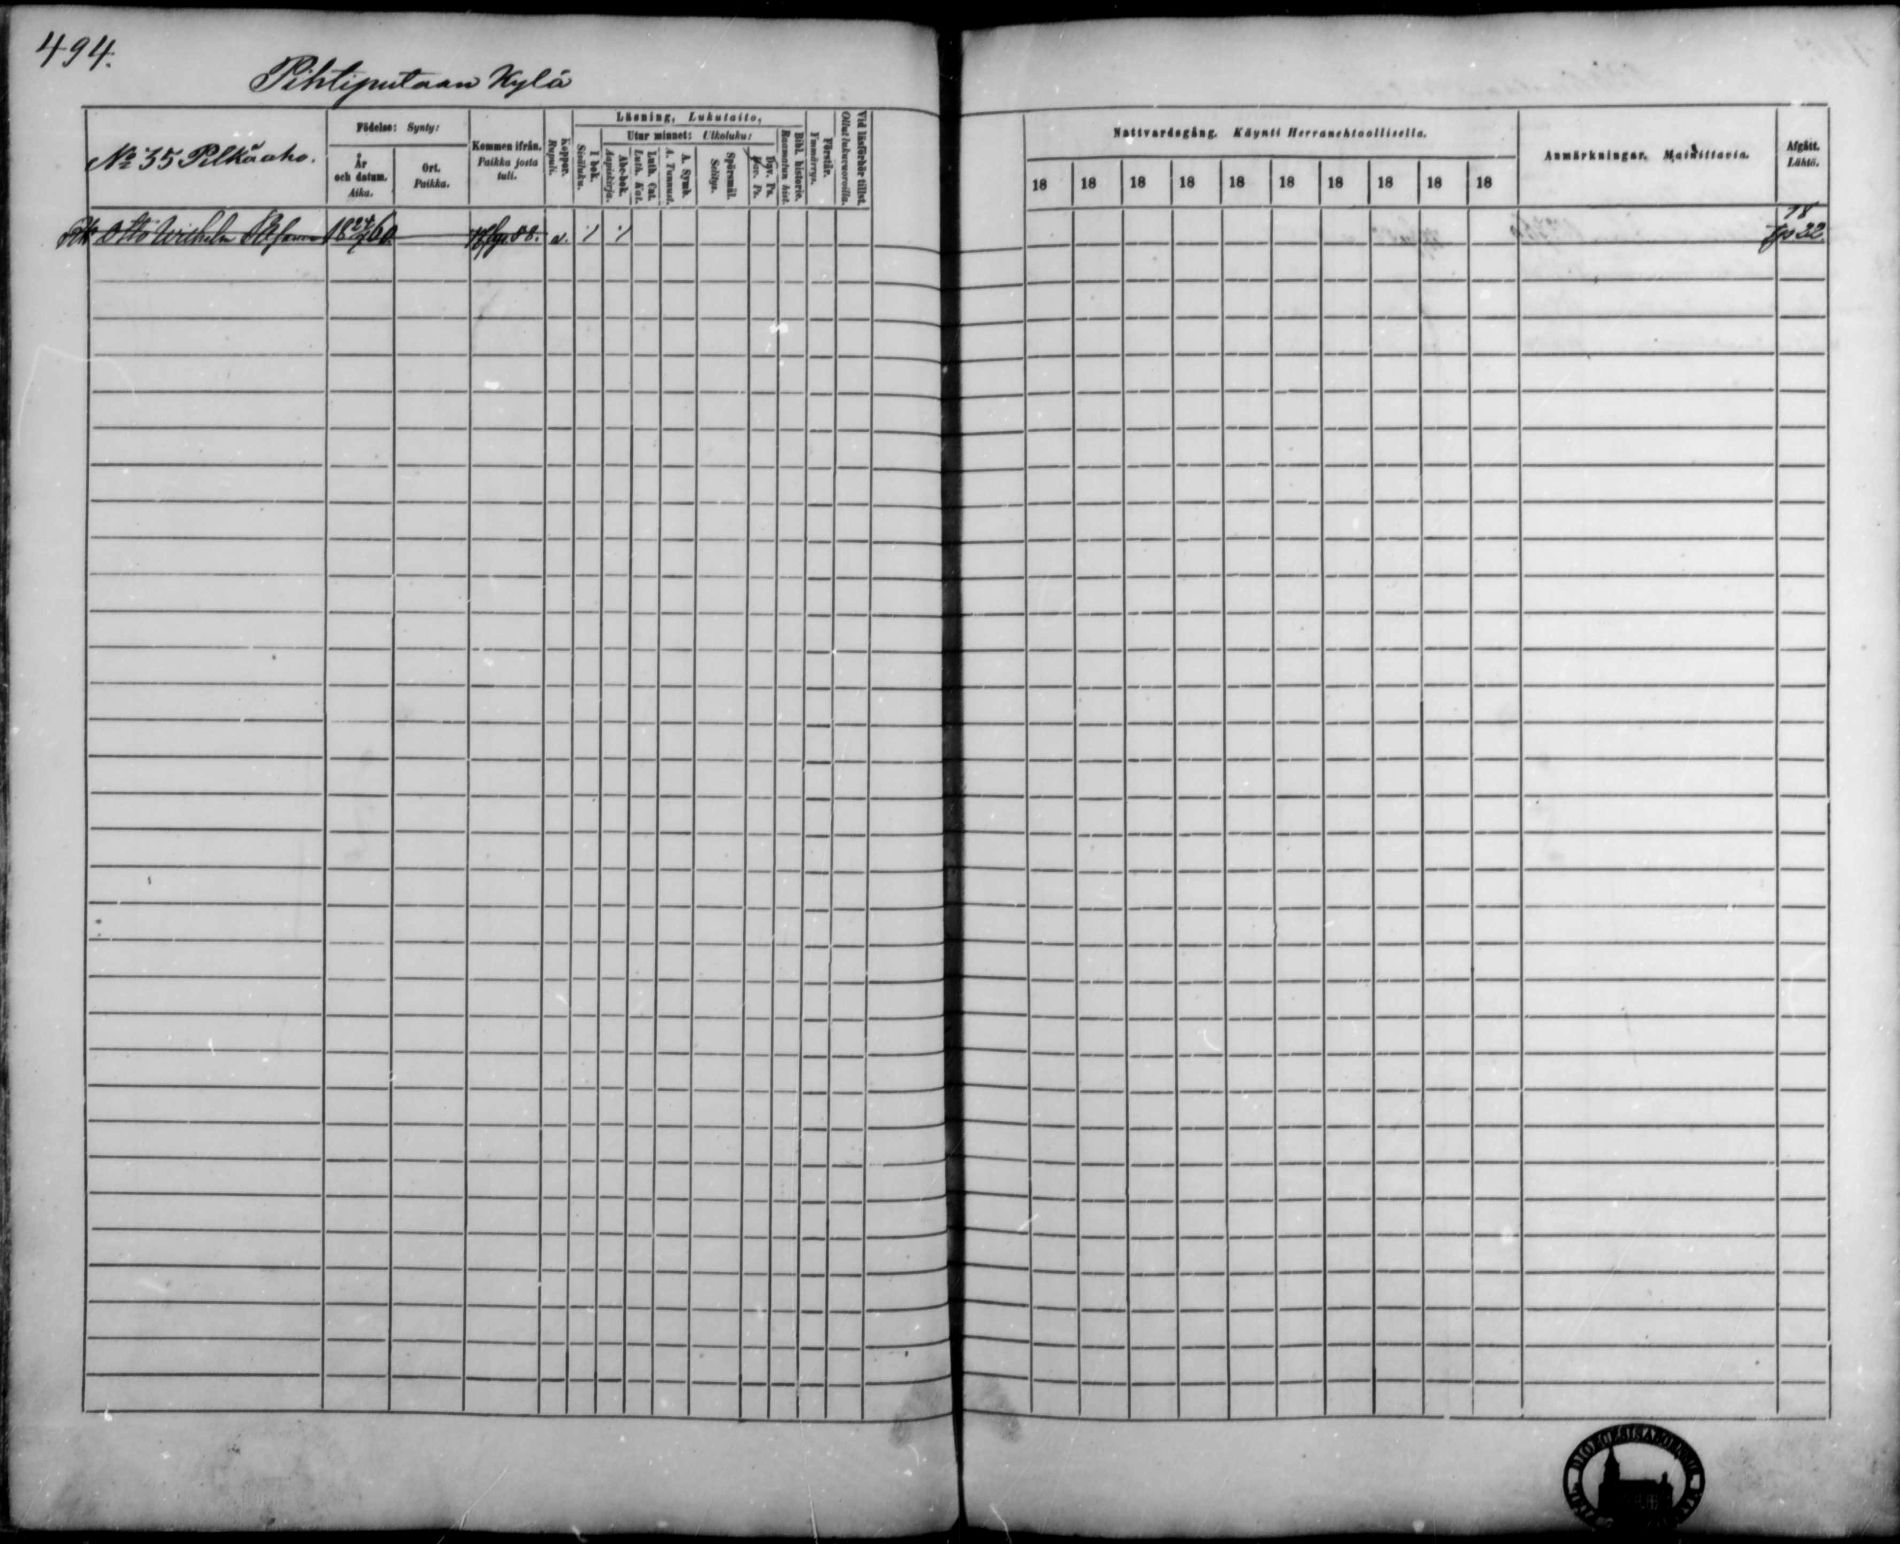 494.
Pihtiputaan Kylä
No 35 Pilkäaho.
Födelse: Synty:
År och datum. Aika.
Ort. Paikka.
Kommen ifrån. Paikka josta tuli.
Koppor. Rupuli.
Läsning, Lukutaito,
I bok. Sisäluku.
Utur minnet: Ulkoluku:
Abc-bok. Aapiskirja.
Luth. Cat. Luth. Kat.
A. Symb. A. Tunnust.
Spörsmål. Selitys.
Dav. Ps.
Bibl. historie. Raamatun hist.
Förstår. Ymmärrys.
Vid läsförhör tillst. Ollut lukuvuoroilla.
Nattvardsgång. Käynti Herranehtoollisella.
18 18 18 18 18 18 18 18 18 18
Anmärkningar. Mainittavia.
Afgått. Lähtö.
Otto Wilhelm 18 60 88.
18
22